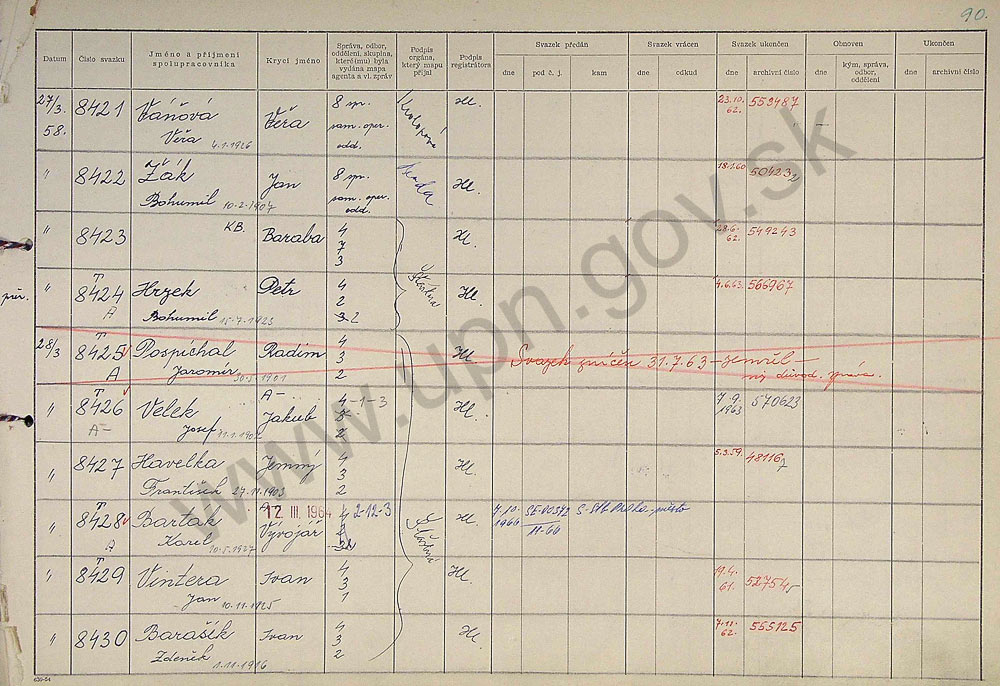 90.
Datum
Číslo svazku
Jméno a příjmení
spolupracovníka
Krycí jméno
Správa, odbor,
oddělení, skupina,
které(mu) byla
vydána mapa
agenta a vl. zpráv
Podpis
orgána,
který mapu
přijal
Podpis
registrátora
Svazek předán
dne
pod č. j.
kam
Svazek vrácen
dne
odkud
Svazek ukončen
dne
archivní číslo
Obnoven
dne
kým, správa,
odbor,
oddělení
Ukončen
dne
archivní číslo
27/3. 8421 Váňová Věra 8 spr. Hl. 23.10. 553487
58. Věra 4.1.1926 sam. oper. 62.
odd.
" 8422 Žák Jan 8 spr. Hl. 18.1.60 504232
Bohumil 10.2.1907 sam. oper.
odd.
" 8423 KB. Baraba 4 Hl. 28.6. 549243
7 62.
3
" T
8424 Hrzek Petr 4 Hl. 4.6.63. 566967
A Bohumil 15.7.1923 2
2
28/3 T
8425 Pospíchal Radim 4 Hl. Svazek zničen 31.7.63 – zemřel –
A Jaromír 3 viz důvod. zpráva.
2
" T
8426 Velek A– 4–1–3 Hl. 7.9. 570623
A– Josef Jakub 1963
2
" 8427 Havelka Jemný 4 Hl. 5.3.59. 481167
František 27.11.1903 3
2
" T
8428 Barták 12 III. 1964 4 2-12-3 Hl. 7.10.
A Karel 20.5.1927 Vývojář 2 1966
" T
8429 Vintera Ivan 4 Hl. 19.4. 527545
Jan 10.11.1925 3 61.
1
" 8430 Barašík Ivan 4 Hl. 7.11. 555125
Zdeněk 1.11.1916 3 62.
2
www.upn.gov.sk